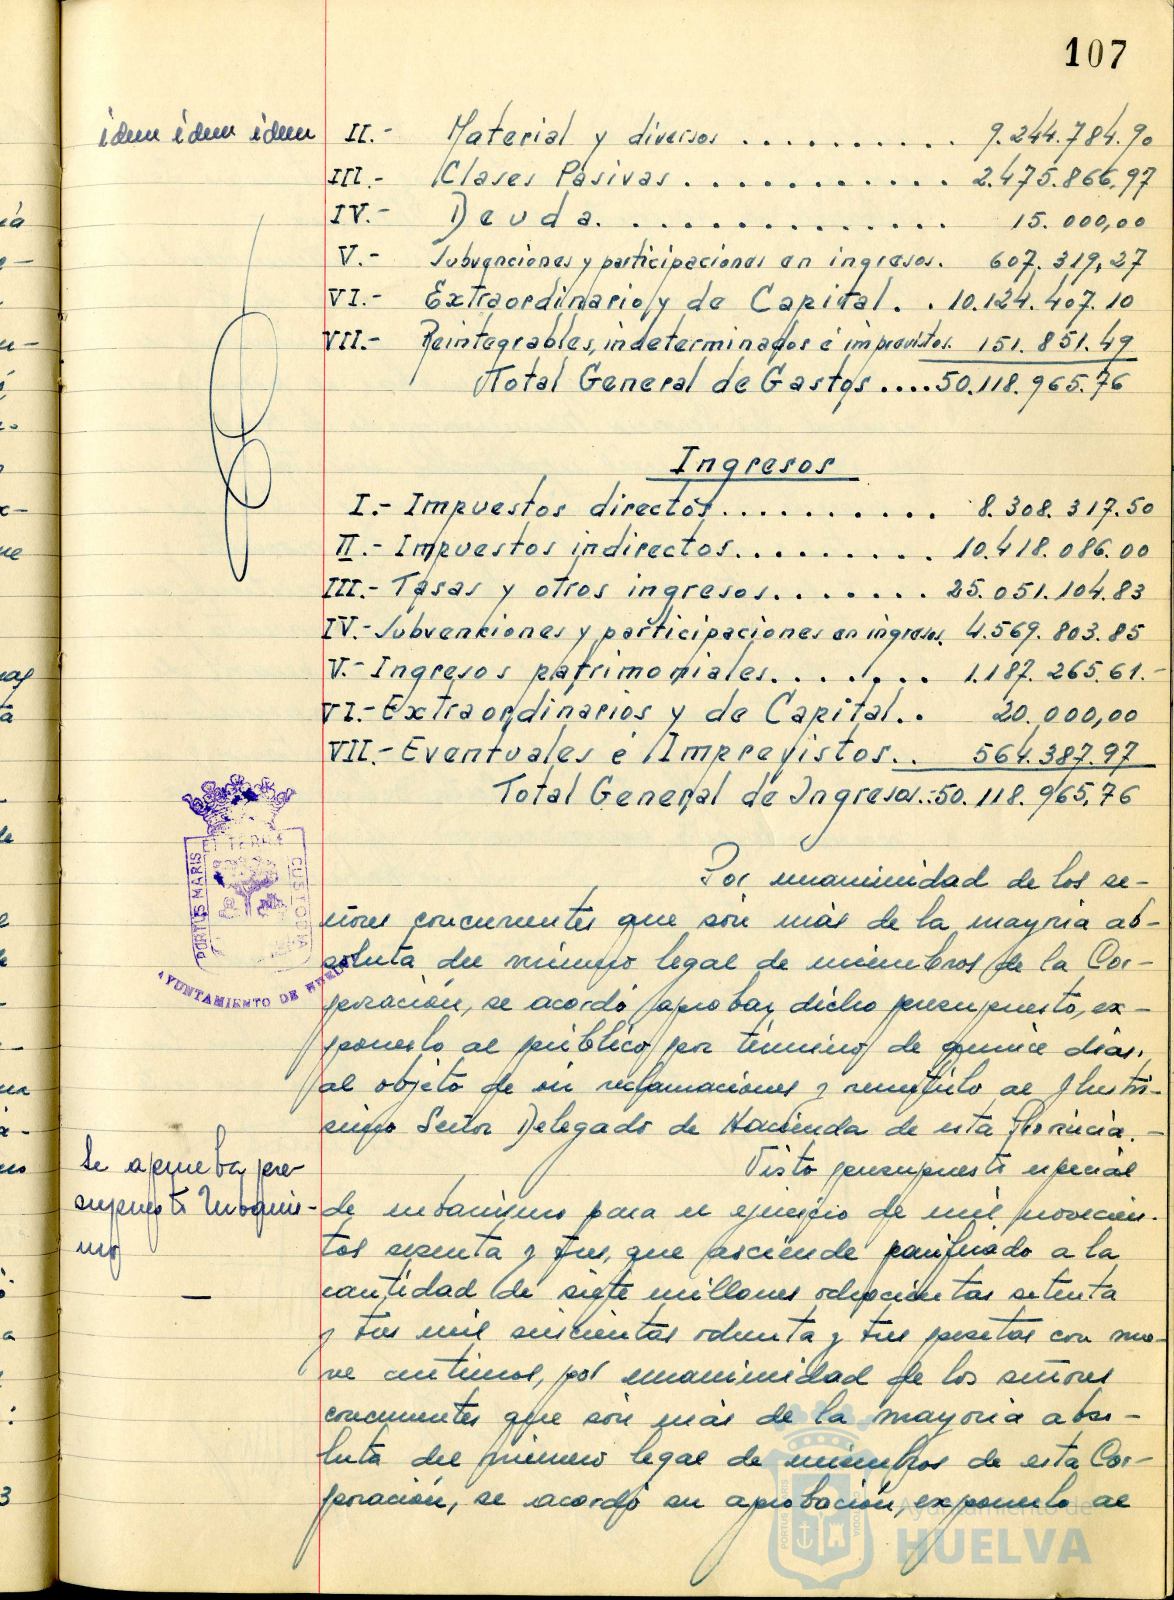 107
idem idem idem
II.- Material y diversos .......... 9.244.784.90
III.- Clases Pasivas ............ 2.475.866,97
IV.- Deuda. .............. 15.000,00
V.- Subvenciones y participaciones en ingresos. 607.319,27
VI.- Extraordinario y de Capital. . 10.124.407.10
VII.- Reintegrables, indeterminados é imprevistos. 151.851.49
Total General de Gastos .... 50.118.965.76
Ingresos
I.- Impuestos directos........... 8.308.317.50
II.- Impuestos indirectos......... 10.418.086.00
III.- Tasas y otros ingresos....... 25.051.104.83
IV.- Subvenciones y participaciones en ingresos. 4.569.803.85
V.- Ingresos patrimoniales....... 1.187.265.61.-
VI.- Extraordinarios y de Capital.. 20.000,00
VII.- Eventuales é Imprevistos.. 564.387.97
Total General de Ingresos..50.118.965,76
Por unanimidad de los se-
ñores concurrentes que son más de la mayoria ab-
soluta del número legal de miembros de la Cor-
poración, se acordó aprobar dicho presupuesto, ex-
ponerlo al público por término de quince dias,
al objeto de oir reclamaciones y remitirlo al Ilustri-
simo Señor Delegado de Hacienda de esta Provincia.-
Se aprueba pre-
supuesto Urbanis-
mo
Visto presupuesto especial
de urbanismo para el ejercicio de mil novecien-
tos sesenta y tres, que asciende a la
cantidad de siete millones ochocientas setenta
y tres mil seiscientas ochenta y tres pesetas con nue-
ve centimos, por unanimidad de los señores
concurrentes que son más de la mayoria abso-
luta del número legal de miembros de esta Cor-
poración, se acordó su aprobación, exponerlo al
PORTUS MARIS
ET TERRE
CUSTODIA
AYUNTAMIENTO DE HUELVA
PORTUS MARIS
CUSTODIA
Ayuntamiento de
HUELVA